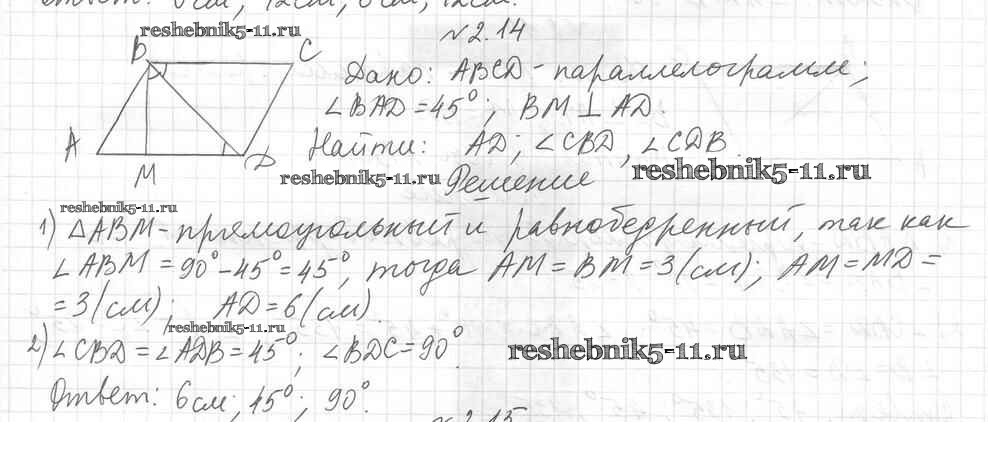 reshebnik5-11.ru
№2.14
B C
A M D
Дано: ABCD - параллелограмм;
∠BAD = 45°; BM ⊥ AD.
Найти: AD; ∠CBD, ∠CDB
reshebnik5-11.ru
reshebnik5-11.ru
Решение
reshebnik5-11.ru
1) △ABM - прямоугольный и равнобедренный, так как
∠ABM = 90° - 45° = 45°, тогда AM = BM = 3 (см); AM = MD =
= 3 (см); AD = 6 (см)
reshebnik5-11.ru
2) ∠CBD = ∠ADB = 45°; ∠BDC = 90°.
reshebnik5-11.ru
Ответ: 6 см; 45°; 90°.
№2.15